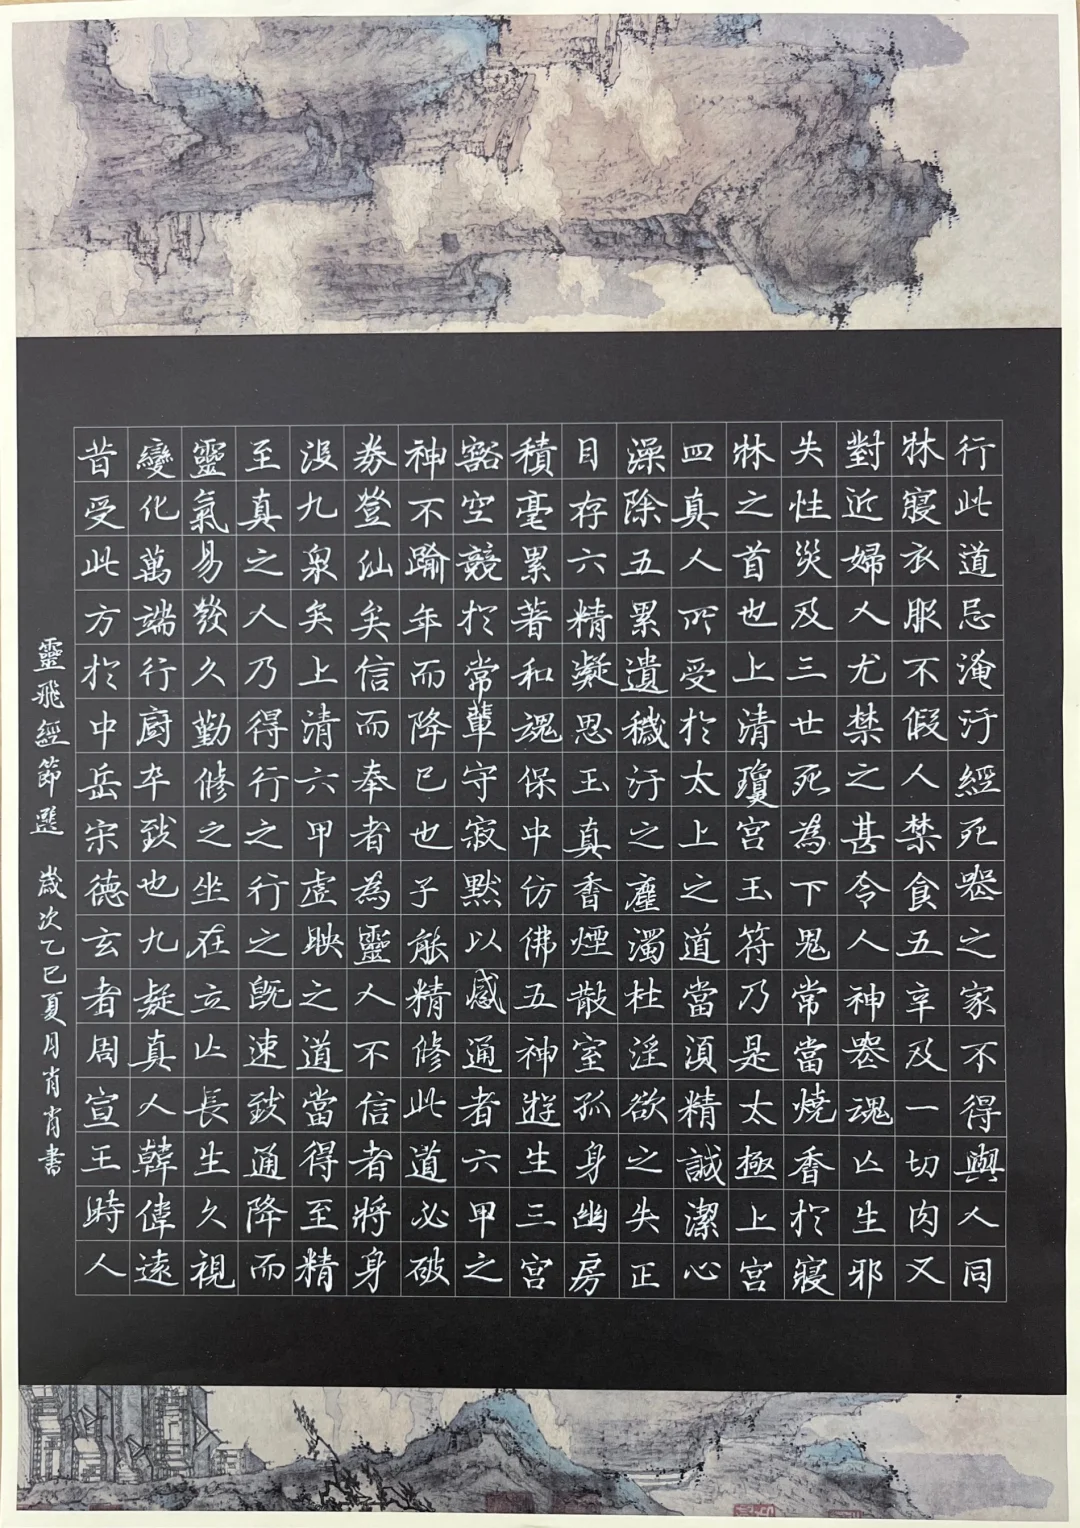 行此道忌淹汙經死喪之家不得與人同
牀寢衣服不假人禁食五辛及一切肉又
對近婦人尤禁之甚令人神喪魂亡生邪
失性災及三世死為下鬼常當燒香於寢
牀之首也上清瓊宮玉符乃是太極上宮
四真人所受於太上之道當須精誠潔心
澡除五累遺穢汙之塵濁杜淫欲之失正
目存六精凝思玉真香煙散室孤身幽房
積毫累著和魂保中仿佛五神遊生三宮
豁空競於常輩守寂默以感通者六甲之
神不踰年而降已也子能精修此道必破
券登仙矣信而奉者為靈人不信者將身
沒九泉矣上清六甲虛映之道當得至精
至真之人乃得行之行之既速致通降而
靈氣易發久勤修之坐在立亡長生久視
變化萬端行廚卒致也九疑真人韓偉遠
昔受此方於中岳宋德玄者周宣王時人
靈飛經節選 歲次乙巳夏月肖肖書